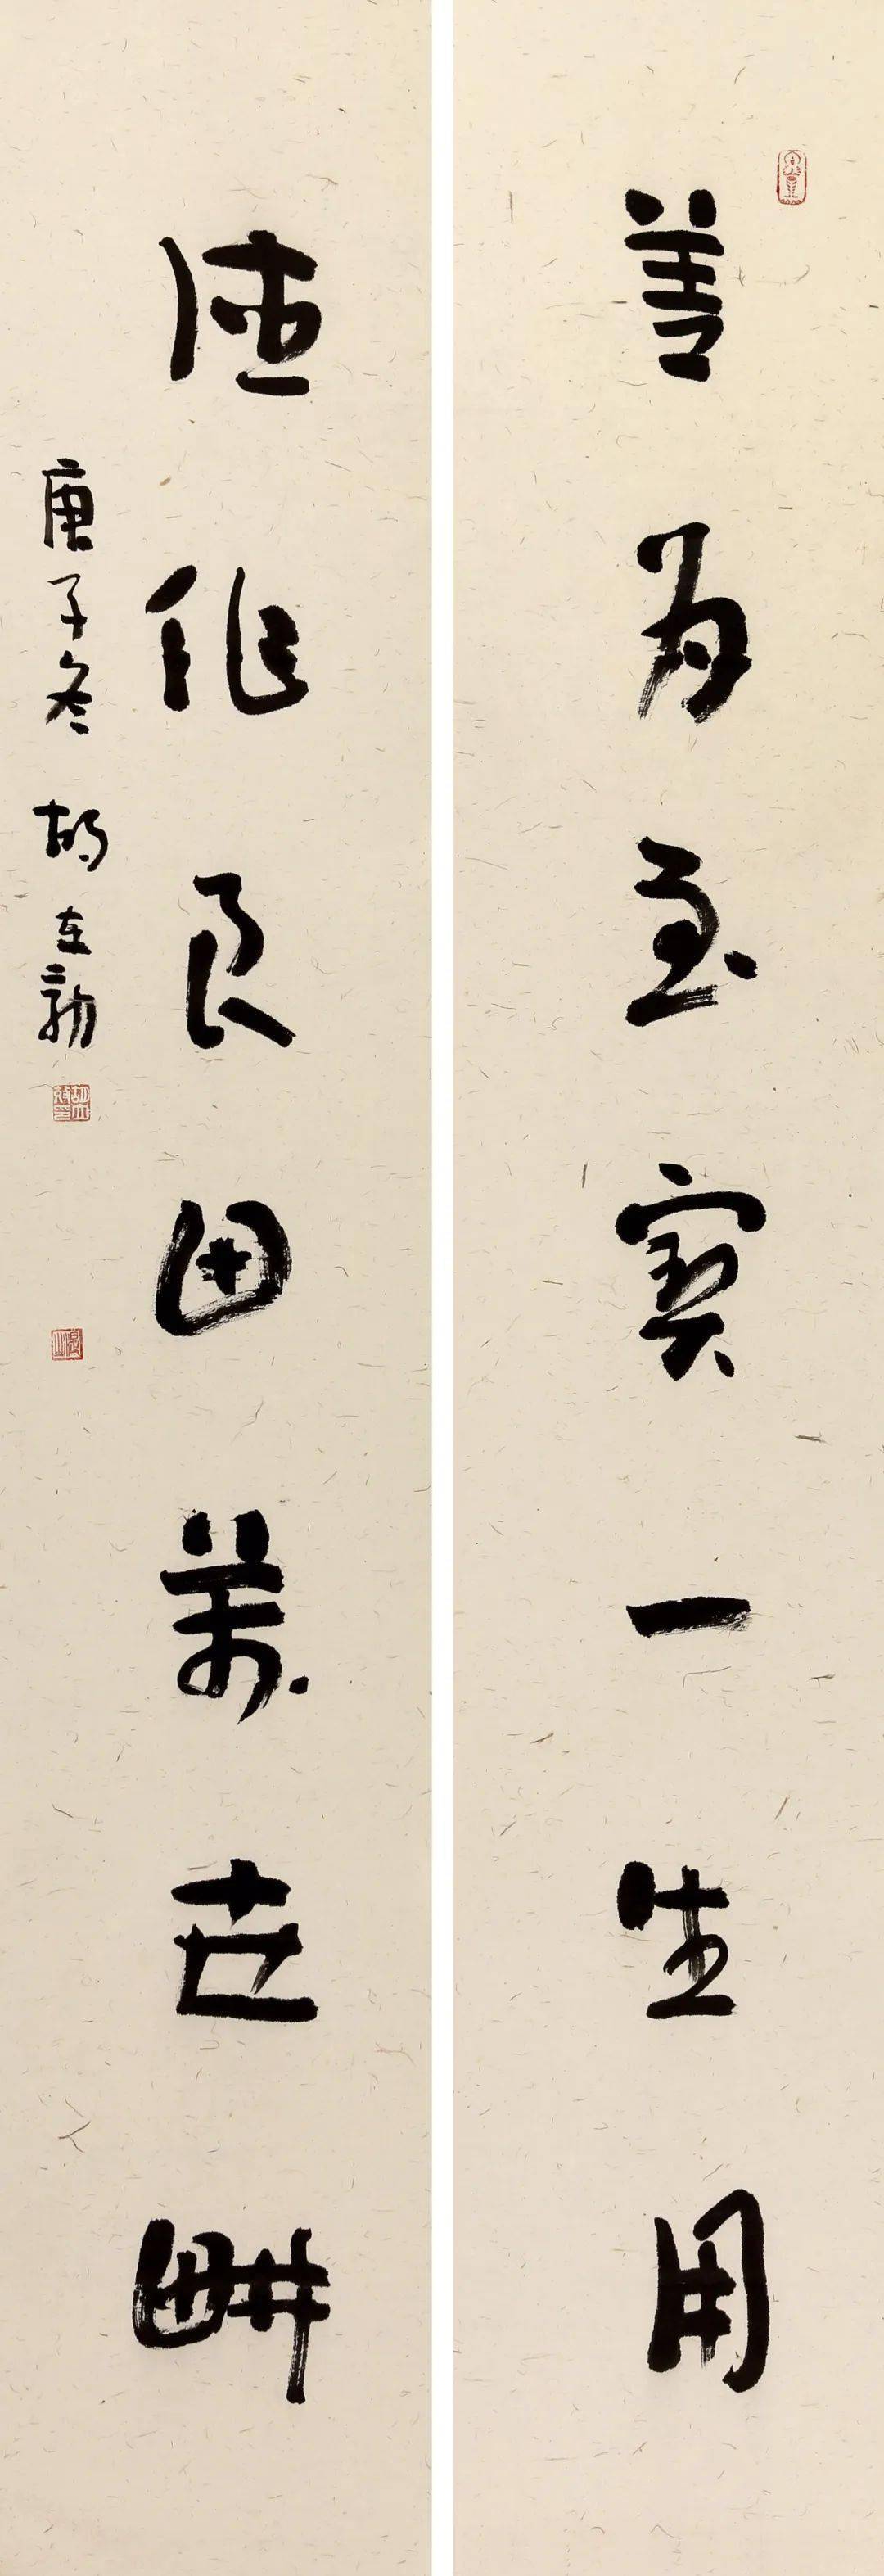 善為至寶一生用
德作良田萬世畊
庚子冬 胡立勃